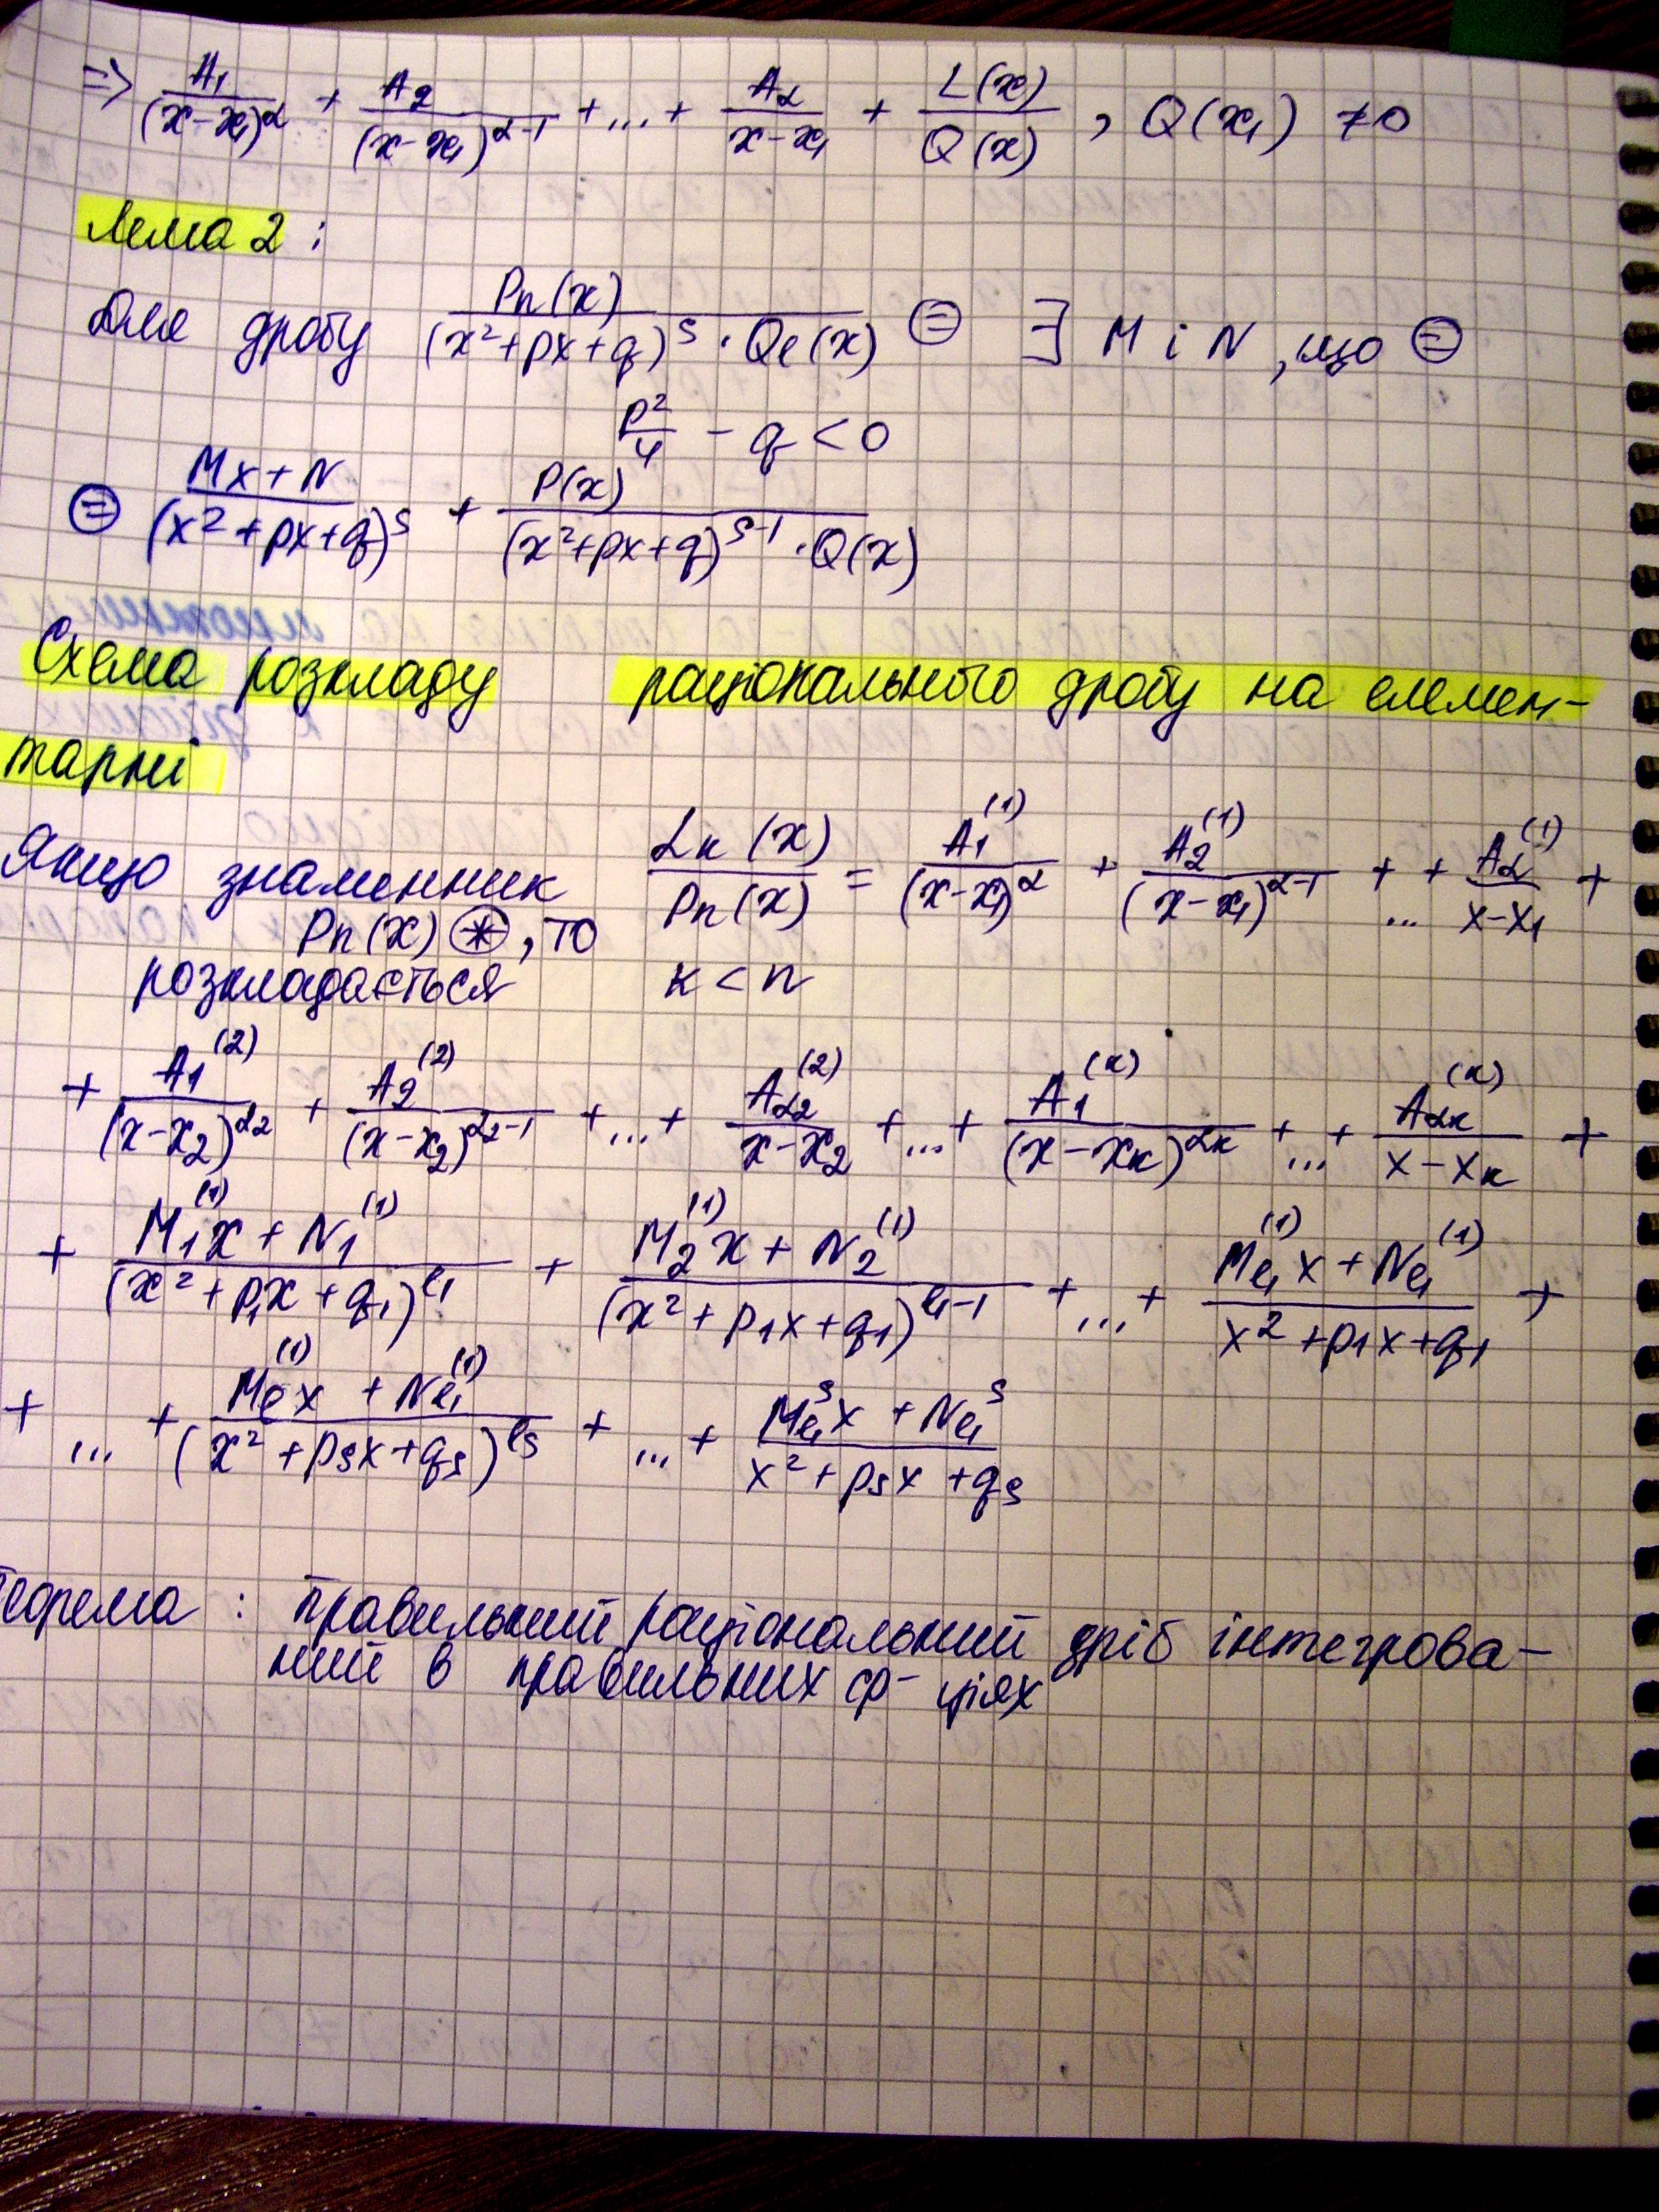 => A₁/(x-x₁)^α + A₂/(x-x₁)^(α-1) + ... + A_α/(x-x₁) + L(x)/Q(x), Q(x₁) ≠ 0
Лема 2:
Для дробу Pₙ(x)/((x²+px+q)^s · Q_ℓ(x)) ⊜ ∃ M і N, що ⊜
p²/4 - q < 0
⊜ (Mx+N)/(x²+px+q)^s + P(x)/((x²+px+q)^(s-1) · Q(x))
Схема розкладу раціонального дробу на елемен-
тарні
Якщо знаменник Lₖ(x)/Pₙ(x) = A₁^(1)/(x-x₁)^α + A₂^(1)/(x-x₁)^(α-1) + ... + A_α^(1)/(x-x₁) +
Pₙ(x) ⊛, то
розкладається к < n
+ A₁^(2)/(x-x₂)^α₂ + A₂^(2)/(x-x₂)^(α₂-1) + ... + A_α₂^(2)/(x-x₂) + ... + A₁^(к)/(x-xₖ)^αₖ + ... + A_αₖ^(к)/(x-xₖ) +
+ (M₁^(1)x + N₁^(1))/(x²+p₁x+q₁)^ℓ₁ + (M₂^(1)x + N₂^(1))/(x²+p₁x+q₁)^(ℓ₁-1) + ... + (M_ℓ₁^(1)x + N_ℓ₁^(1))/(x²+p₁x+q₁) +
+ ... + (M_ℓ^(1)x + N_ℓ₁^(1))/(x²+pₛx+qₛ)^ℓₛ + ... + (M_ℓ₁^s x + N_ℓ₁^s)/(x²+pₛx+qₛ)
Теорема: правильний раціональний дріб інтегрова-
ний в правильних ф-ціях